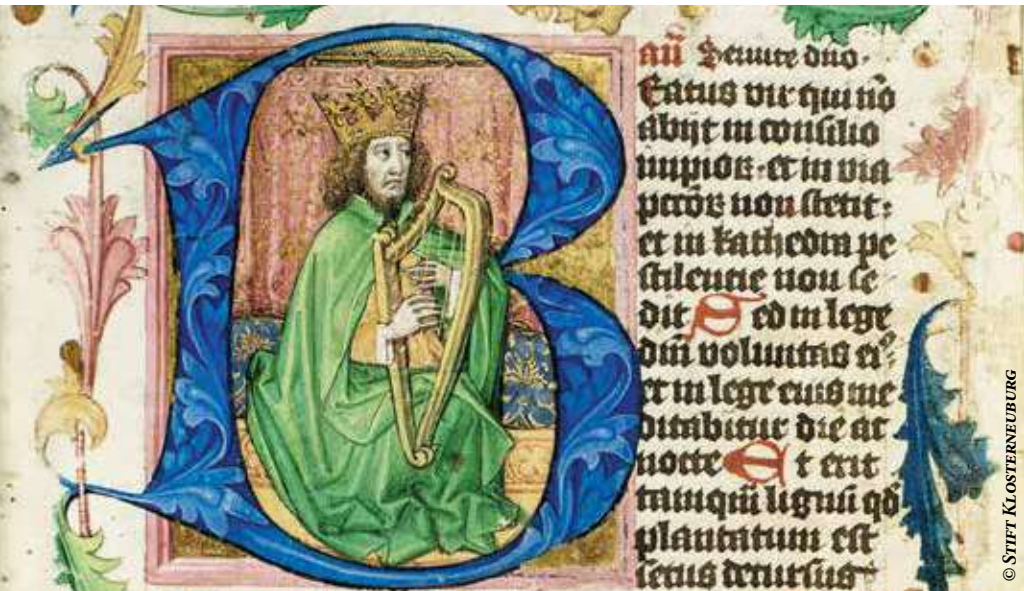 B
añ Seruite dno.
Eatus vir qui nō
abijt in consilio
impioꝝ et in via
pctōꝝ non stetit:
et in kathedra pe
stilencie non se
dit Sed in lege
dn̄i voluntas ei⁹
et in lege eius me
ditabitur die ac
nocte Et erit
tamqm̄ lignū qd̄
plantatum est
secus decursus
© STIFT KLOSTERNEUBURG